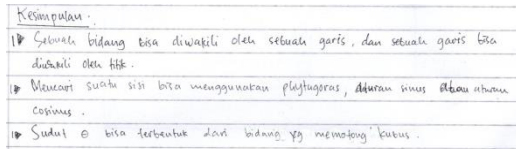 Kesimpulan.
Sebuah bidang bisa diwakili oleh sebuah garis, dan sebuah garis bisa
diwakili oleh titik.
Mencari suatu sisi bisa menggunakan phytagoras, aturan sinus atau aturan
cosinus.
Sudut θ bisa terbentuk dari bidang yg memotong kubus.